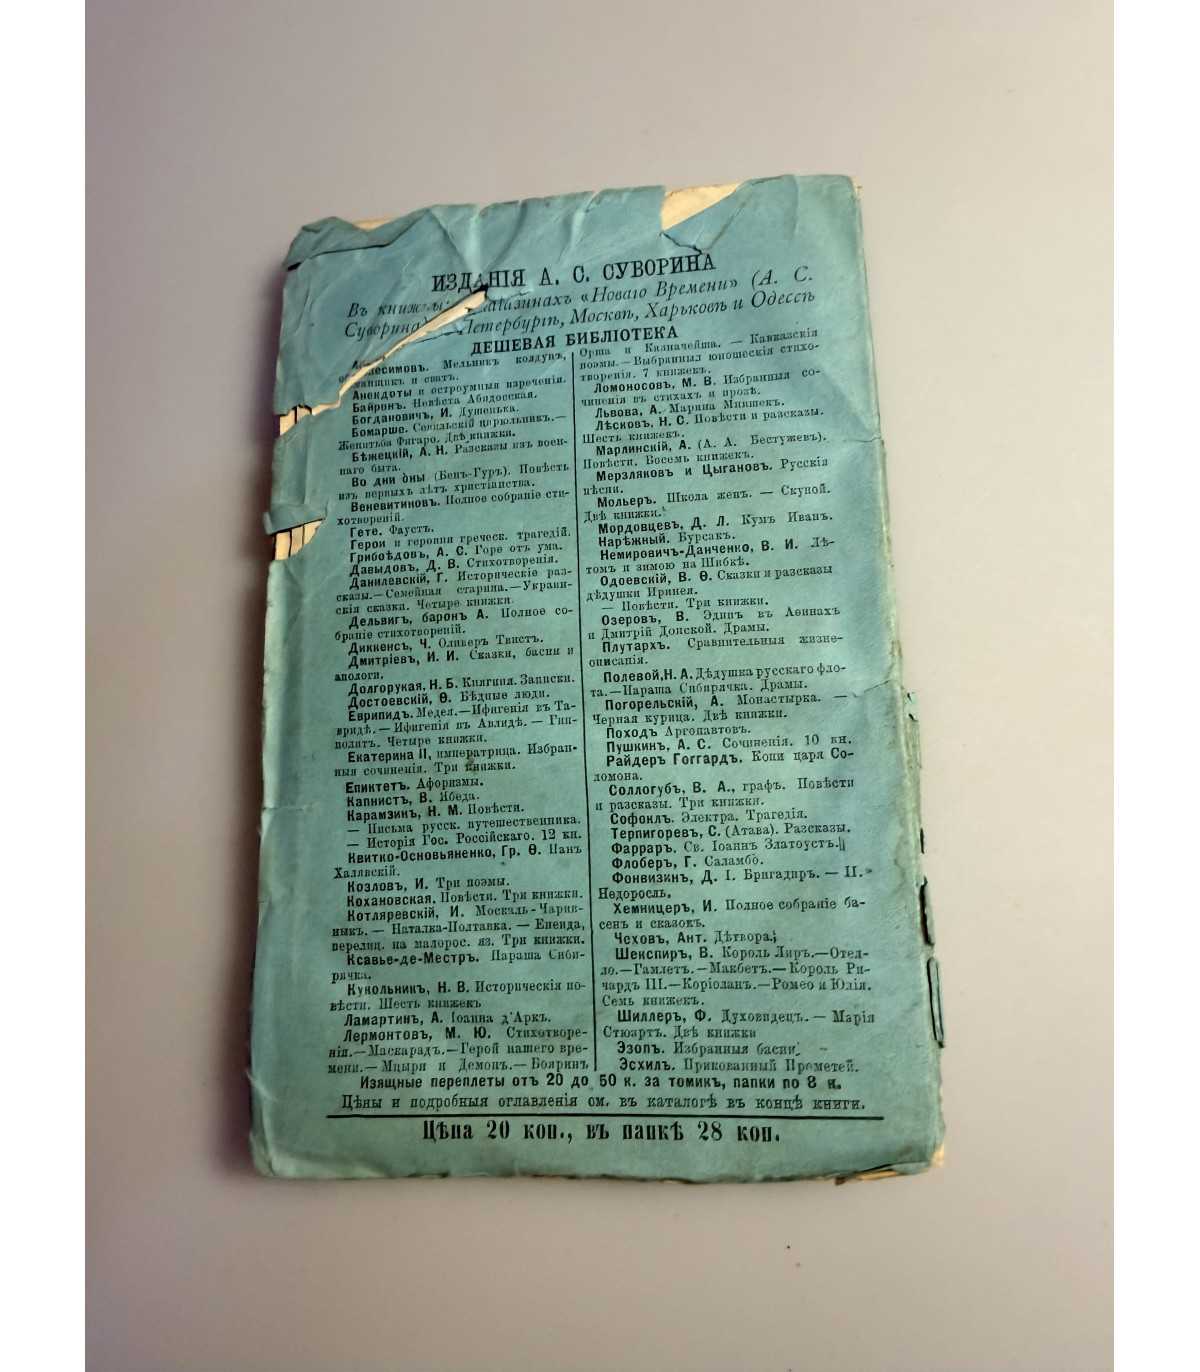 ИЗДАНІЯ А. С. СУВОРИНА
Въ «Новаго Времени» (А. С.
Суворина) Петербургѣ, Москвѣ, Харьковѣ и Одессѣ
ДЕШЕВАЯ БИБЛІОТЕКА
Мельникъ колдунъ,
и сватъ.
Анекдоты и остроумныя изреченія.
Байронъ. Невѣста Абидосская.
Богдановичъ, И. Душенька.
Бомарше. Севильскій цирюльникъ.—
Женитьба Фигаро. Двѣ книжки.
Бѣжецкій, А. Н. Разсказы изъ воен-
наго быта.
Во дни оны (Бенъ-Гуръ). Повѣсть
изъ первыхъ лѣтъ христіанства.
Веневитиновъ. Полное собраніе сти-
хотвореній.
Гете. Фаустъ.
Герои и героини греческ. трагедій.
Грибоѣдовъ, А. С. Горе отъ ума.
Давыдовъ, Д. В. Стихотворенія.
Данилевскій, Г. Историческіе раз-
сказы.—Семейная старина.—Украин-
скія сказки. Четыре книжки.
Дельвигъ, баронъ А. Полное со-
браніе стихотвореній.
Диккенсъ, Ч. Оливеръ Твистъ.
Дмитріевъ, И. И. Сказки, басни и
апологи.
Долгорукая, Н. Б. Княгиня. Записки.
Достоевскій, Ѳ. Бѣдные люди.
Еврипидъ. Медея.—Ифигенія въ Та-
вридѣ.—Ифигенія въ Авлидѣ.—Гип-
политъ. Четыре книжки.
Екатерина II, императрица. Избран-
ныя сочиненія. Три книжки.
Епиктетъ. Афоризмы.
Капнистъ, В. Ябеда.
Карамзинъ, Н. М. Повѣсти.
— Письма русск. путешественника.
— Исторія Гос. Россійскаго. 12 кн.
Квитко-Основьяненко, Гр. Ѳ. Панъ
Халявскій.
Козловъ, И. Три поэмы.
Кохановская. Повѣсти. Три книжки.
Котляревскій, И. Москаль-Чарив-
ныкъ.—Наталка-Полтавка.—Енеида,
перелиц. на малорос. яз. Три книжки.
Ксавье-де-Местръ. Параша Сиби-
рячка.
Кукольникъ, Н. В. Историческія по-
вѣсти. Шесть книжекъ
Ламартинъ, А. Іоанна д'Аркъ.
Лермонтовъ, М. Ю. Стихотворе-
нія.—Маскарадъ.—Герой нашего вре-
мени.—Мцыри и Демонъ.—Бояринъ
Орша и Казначейша. — Кавказскія
поэмы.—Выбранныя юношескія стихо-
творенія. 7 книжекъ.
Ломоносовъ, М. В. Избранныя со-
чиненія въ стихахъ и прозѣ.
Львова, А. Марина Мнишекъ.
Лѣсковъ, Н. С. Повѣсти и разсказы.
Шесть книжекъ.
Марлинскій, А. (А. А. Бестужевъ).
Повѣсти. Восемь книжекъ.
Мерзляковъ и Цыгановъ. Русскія
пѣсни.
Мольеръ. Школа женъ. — Скупой.
Двѣ книжки.
Мордовцевъ, Д. Л. Кумъ Иванъ.
Нарѣжный. Бурсакъ.
Немировичъ-Данченко, В. И. Лѣ-
томъ и зимою на Шибкѣ.
Одоевскій, В. Ѳ. Сказки и разсказы
дѣдушки Иринея.
— Повѣсти. Три книжки.
Озеровъ, В. Эдипъ въ Аѳинахъ
и Дмитрій Донской. Драмы.
Плутархъ. Сравнительныя жизне-
описанія.
Полевой, Н. А. Дѣдушка русскаго фло-
та.—Параша Сибирячка. Драмы.
Погорельскій, А. Монастырка. —
Черная курица. Двѣ книжки.
Походъ Аргонавтовъ.
Пушкинъ, А. С. Сочиненія. 10 кн.
Райдеръ Гоггардъ. Копи царя Со-
ломона.
Соллогубъ, В. А., графъ. Повѣсти
и разсказы. Три книжки.
Софоклъ. Электра. Трагедія.
Терпигоревъ, С. (Атава). Разсказы.
Фарраръ. Св. Іоаннъ Златоустъ.
Флоберъ, Г. Саламбо.
Фонвизинъ, Д. I. Бригадиръ. — II.
Недоросль.
Хемницеръ, И. Полное собраніе ба-
сенъ и сказокъ.
Чеховъ, Ант. Дѣтвора.
Шекспиръ, В. Король Лиръ.—Отел-
ло.—Гамлетъ.—Макбетъ.—Король Ри-
чардъ III.—Коріоланъ.—Ромео и Юлія.
Семь книжекъ.
Шиллеръ, Ф. Духовидецъ. — Марія
Стюартъ. Двѣ книжки
Эзопъ. Избранныя басни.
Эсхилъ. Прикованный Прометей.
Изящные переплеты отъ 20 до 50 к. за томикъ, папки по 8 к.
Цѣны и подробныя оглавленія см. въ каталогѣ въ концѣ книги.
Цѣна 20 коп., въ папкѣ 28 коп.